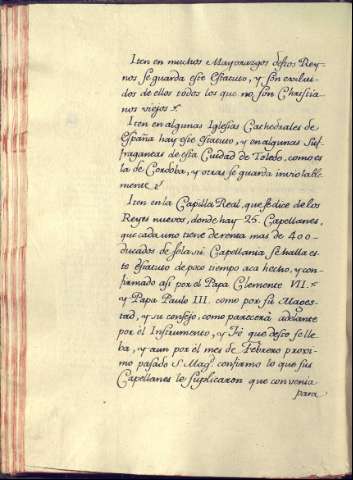 Iten en muchos Mayorazgos destos Rey-
nos se guarda este estatuto, y són exclui-
dos de ellos todos los que no són Christia-
nos viejos.
Iten en algunas Iglesias Cathedrales de
España hay este estatuto, y en algunas Suf-
fraganeas de esta Ciudad de Toledo, como es
la de Cordoba, y otras se guarda inviolable-
mente.
Iten en la Capilla Real, que se dice de los
Reyes nuevos, donde hay 25. Capellanes,
que cada uno tiene de renta mas de 400-
ducados de sola su Capellania se halla es-
te estatuto de poco tiempo acá hecho, y con-
firmado así por el Papa Clemente VII.
y Papa Paulo III. como por sú Mages-
tad, y su consejo, como parecerá adelante
por el Instrumento, y Fé que desto se lle-
ba, y aun por él mes de Febrero proxi-
mo pasado S. Mag.d confirmo lo que sus
Capellanes le suplicaron que convenia
para